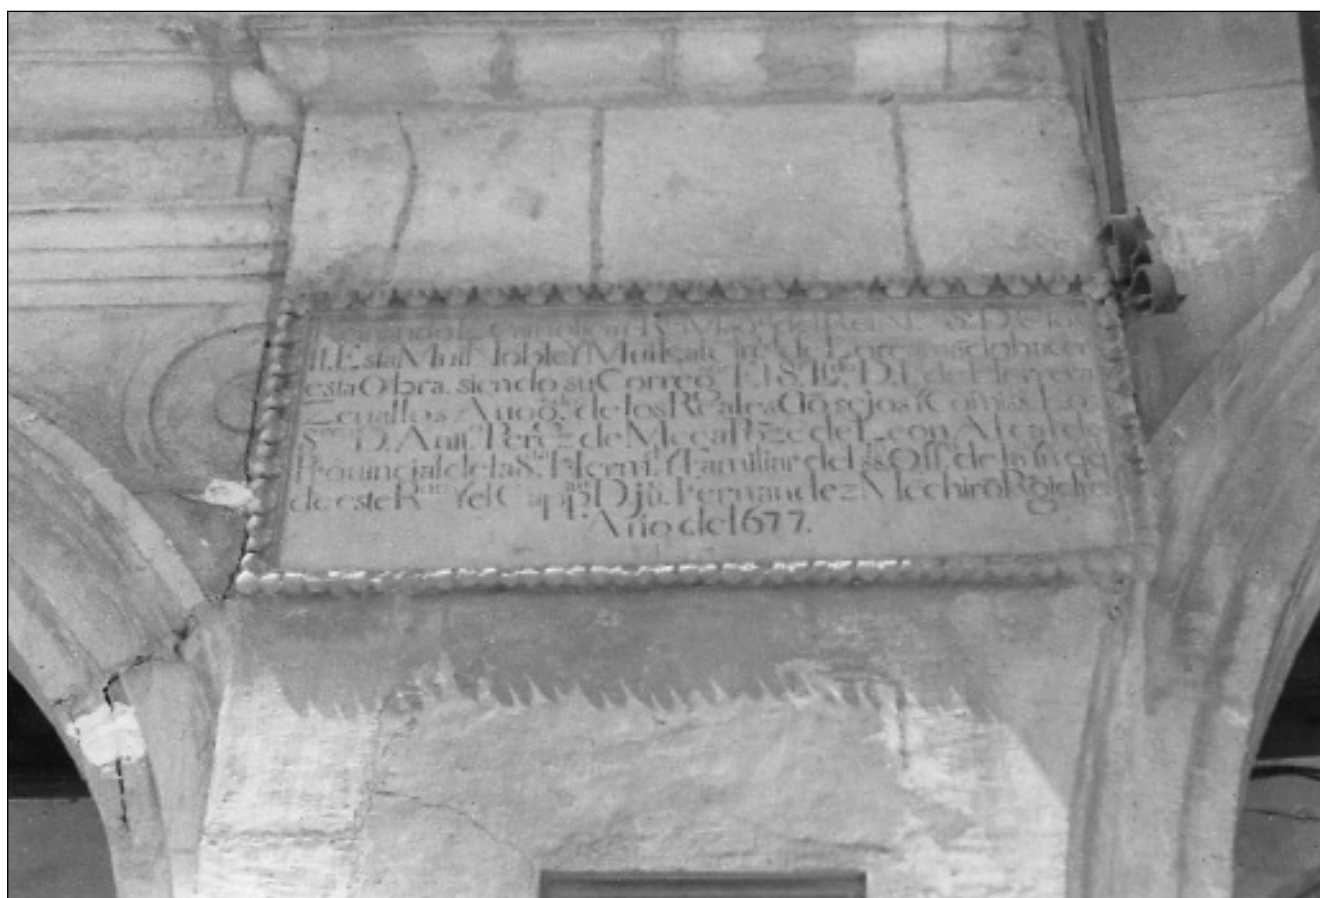 Reinando la Catholica R. Mag.d del Rei N. S. D. Carlos
II. Esta Mui Noble Y Mui Leal Ciu.d de Lorca mando hacer
esta Obra. siendo su Correg.or El S.r L.do D. J. de Herrera
Zevallos Auog.do de los Reales Cosejos Y Comiss.
S.res D. Anit.o Perez de Meca Pōze de Leon Alcalde
Provincial de la S.ta Herm.d Y Familiar del S.to Off.o de la Inq.
de este R.no Y el Cappan. D Ju. Fernandez Mechirō
Año de 1677.